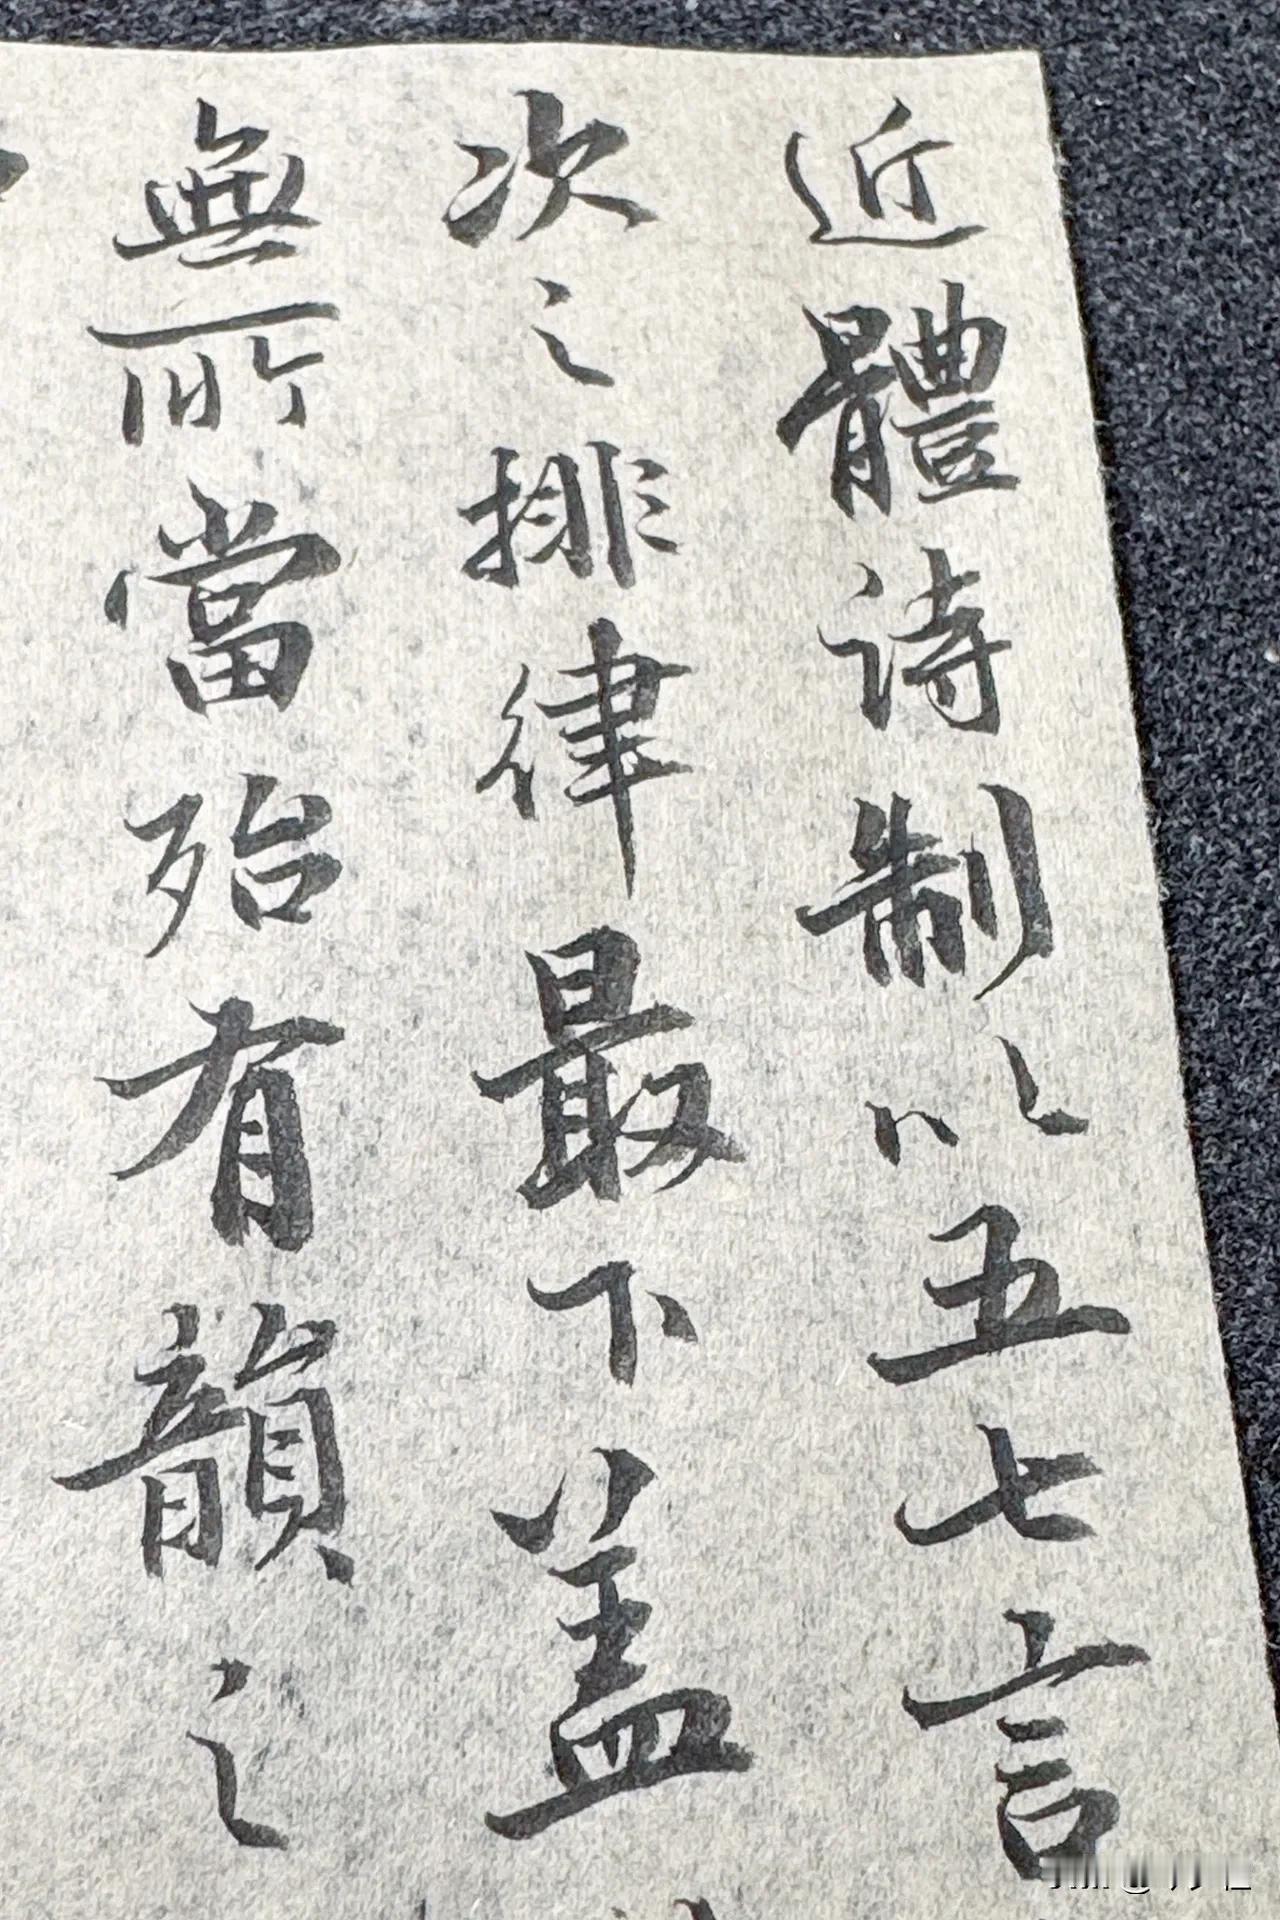 近體诗制以五七言
次之排律最下盖
無所當殆有韻之